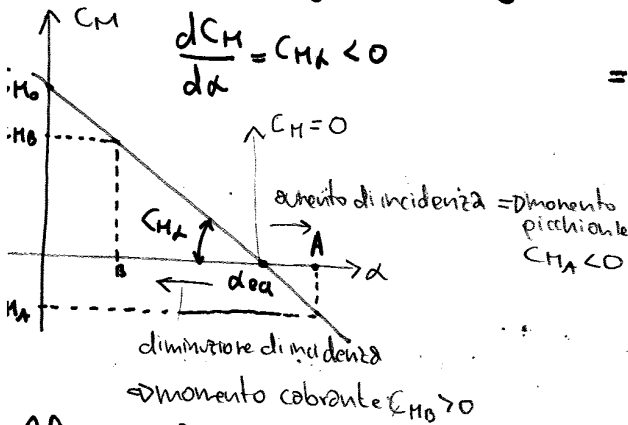 C_M
dC_M/dα = C_Mα < 0
=
C_M0
C_MB
C_M = 0
aumento di incidenza => momento
picchiante
C_MA < 0
C_Mα
A
B
α_eq
α
M_A
diminuzione di incidenza
=> momento cabrante C_MB > 0